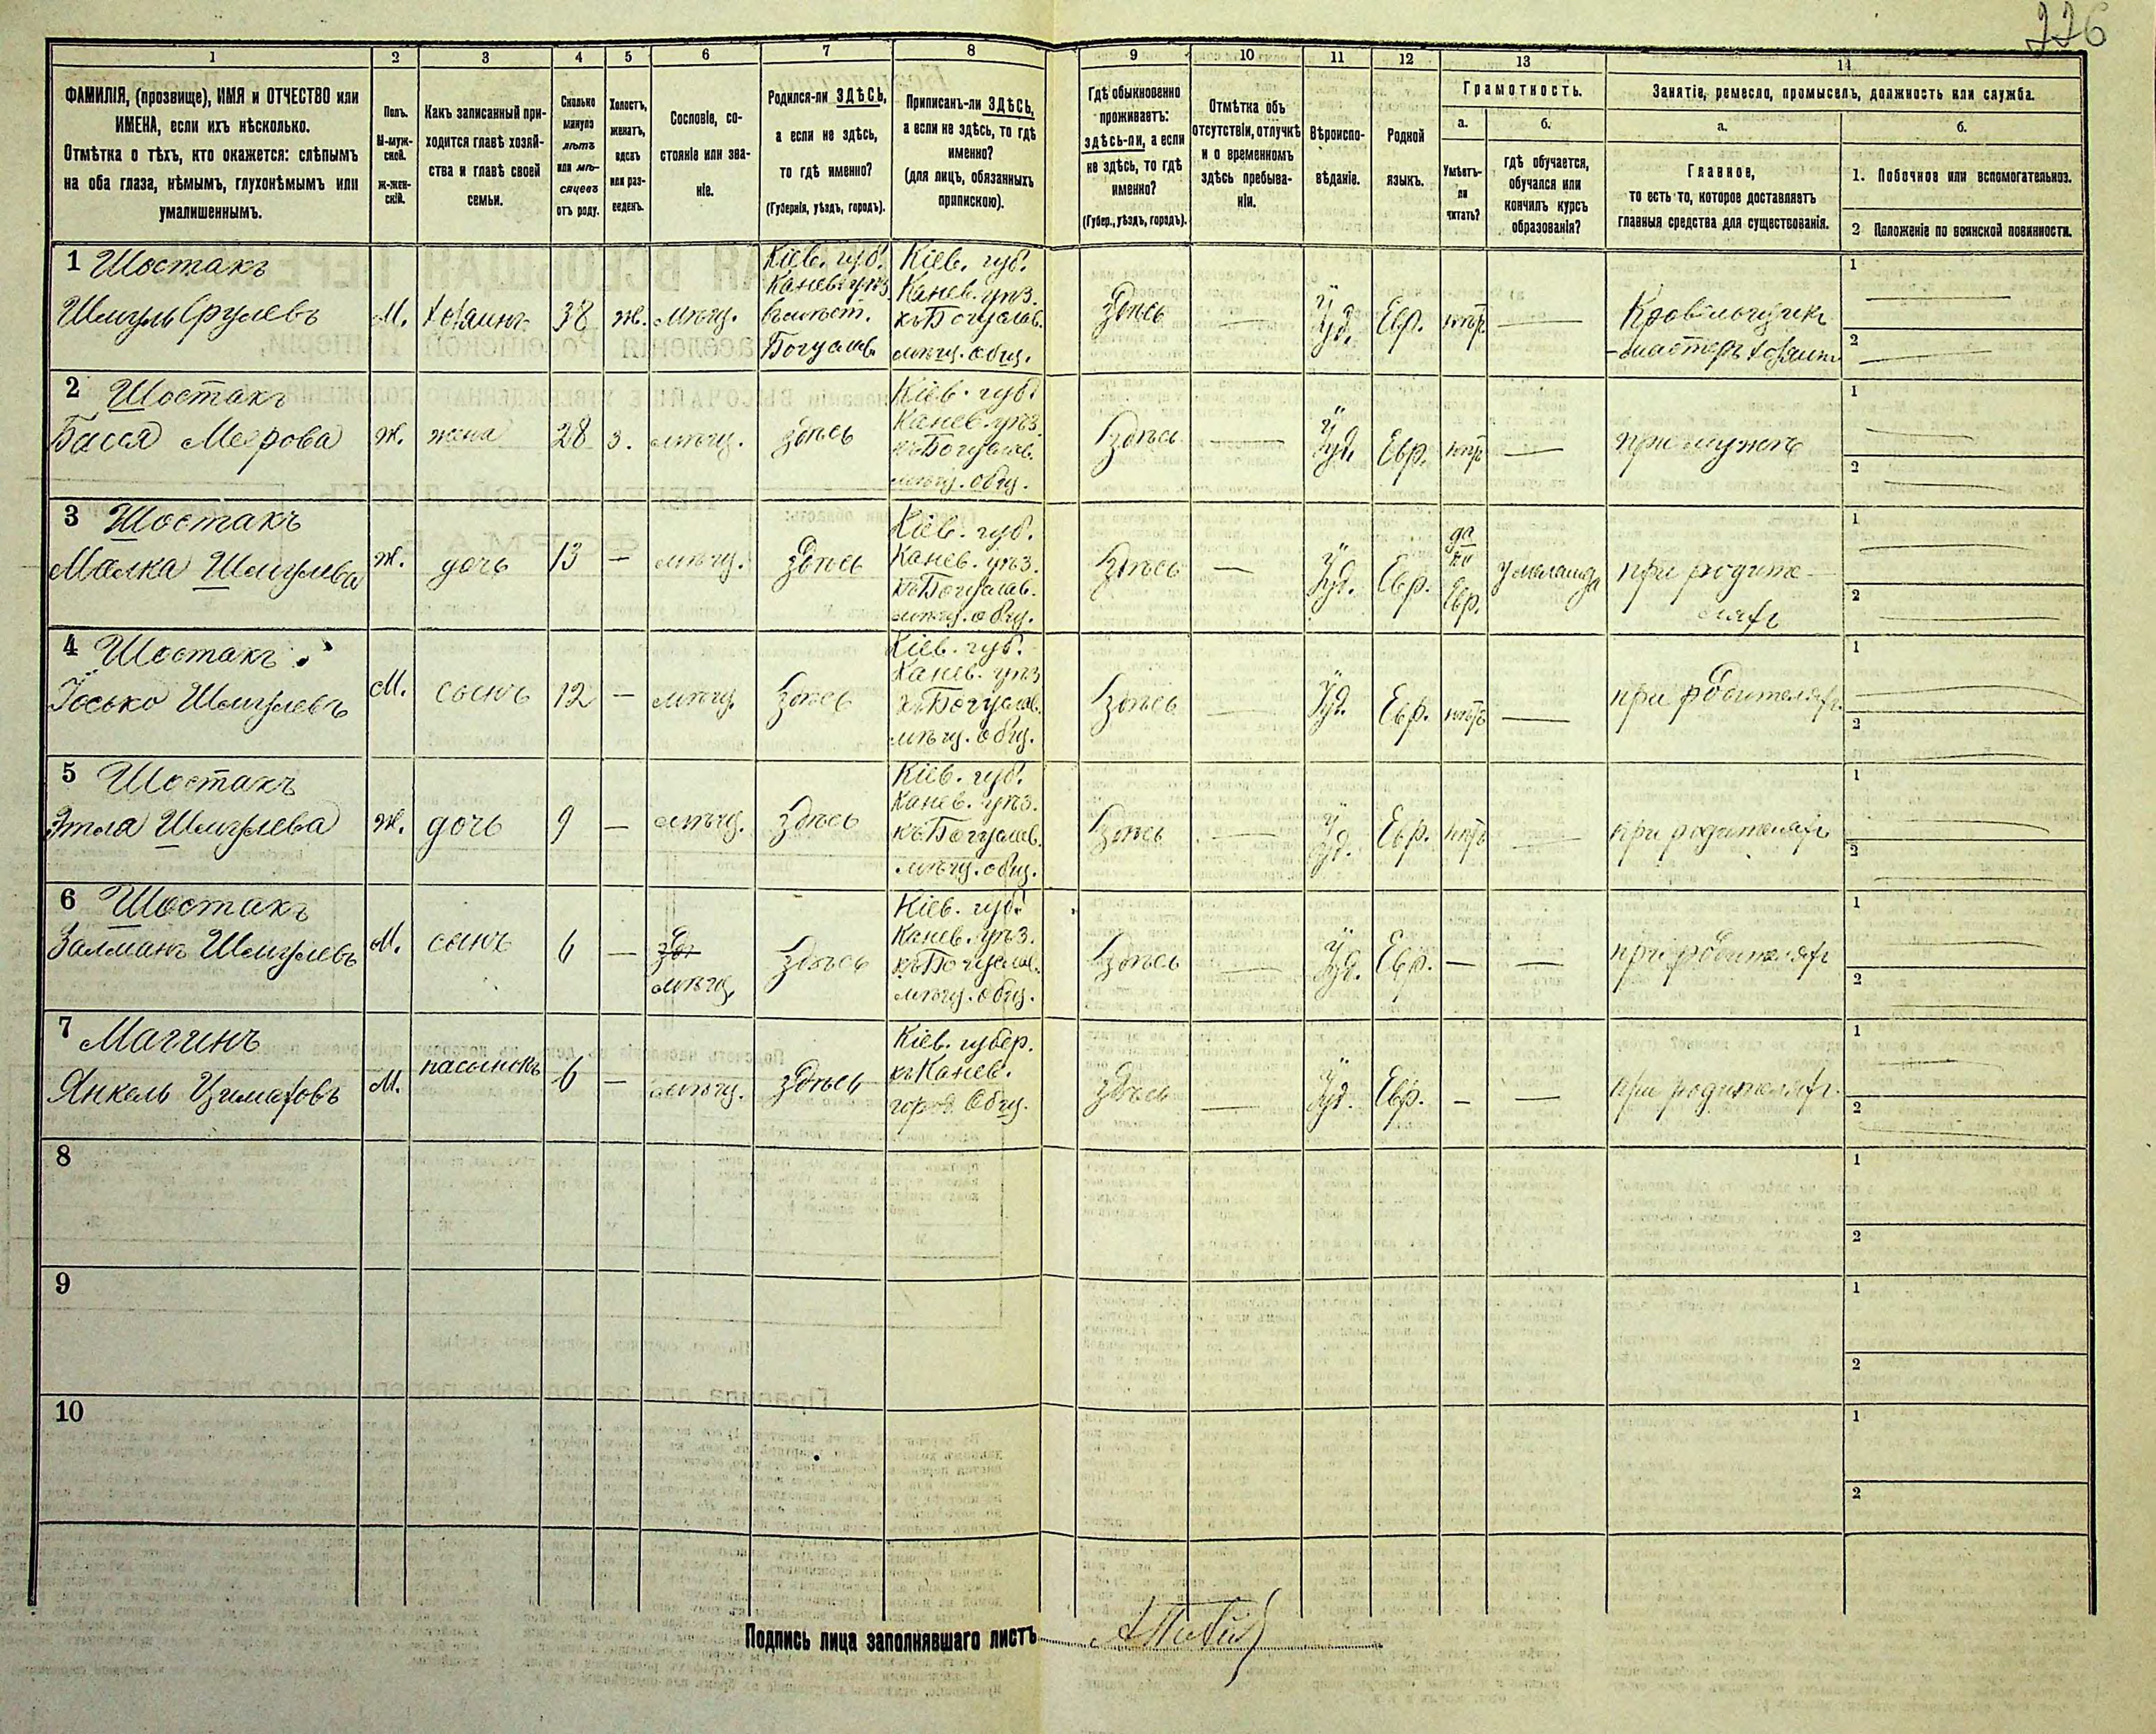 226
1
2
3
4
5
6
7
8
9
10
11
12
13
14
ФАМИЛІЯ, (прозвище), ИМЯ и ОТЧЕСТВО или
ИМЕНА, если ихъ нѣсколько.
Отмѣтка о тѣхъ, кто окажется: слѣпымъ
на оба глаза, нѣмымъ, глухонѣмымъ или
умалишеннымъ.
Полъ.
М-муж-
ской.
Ж-жен-
скій.
Какъ записанный при-
ходится главѣ хозяй-
ства и главѣ своей
семьи.
Сколько
минуло
лѣтъ
или мѣ-
сяцевъ
отъ роду.
Холостъ,
женатъ,
вдовъ
или раз-
веденъ.
Сословіе, со-
стояніе или зва-
ніе.
Родился-ли ЗДѢСЬ,
а если не здѣсь,
то гдѣ именно?
(Губернія, уѣздъ, городъ).
Приписанъ-ли ЗДѢСЬ,
а если не здѣсь, то гдѣ
именно?
(для лицъ, обязанныхъ
припискою).
Гдѣ обыкновенно
проживаетъ:
здѣсь-ли, а если
не здѣсь, то гдѣ
именно?
(Губер., уѣздъ, городъ).
Отмѣтка объ
отсутствіи, отлучкѣ
и о временномъ
здѣсь пребыва-
ніи.
Вѣроиспо-
вѣданіе.
Родной
языкъ.
Грамотность.
а.
Умѣетъ-
ли
читать?
б.
гдѣ обучается,
обучался или
кончилъ курсъ
образованія?
Занятіе, ремесло, промыселъ, должность или служба.
а.
Главное,
то есть то, которое доставляетъ
главныя средства для существованія.
б.
1. Побочное или вспомогательное.
2 Положеніе по воинской повинности.
1 Шостакъ
Шмуль Срулевъ
М.
хозяинъ
38
ж.
мѣщ.
Кіев. губ.
Канев. уѣз.
Богуслав.
Кіев. губ.
Канев. уѣз.
къ Богуслав.
мѣщ. общ.
здѣсь
—
Іуд.
Евр.
нѣтъ
—
Кровельщикъ
-мастеръ хозяинъ
1
2
2 Шостакъ
Бася Меерова
ж.
жена
28
з.
мѣщ.
здѣсь
Кіев. губ.
Канев. уѣз.
къ Богуслав.
мѣщ. общ.
здѣсь
—
Іуд.
Евр.
нѣтъ
—
при мужѣ
1
2
3 Шостакъ
Малка Шмулева
ж.
дочь
13
—
мѣщ.
здѣсь
Кіев. губ.
Канев. уѣз.
къ Богуслав.
мѣщ. общ.
здѣсь
—
Іуд.
Евр.
да
по
Евр.
у меламда
при родите-
ляхъ
1
2
4 Шостакъ
Іосько Шмулевъ
М.
сынъ
12
—
мѣщ.
здѣсь
Кіев. губ.
Канев. уѣз.
къ Богуслав.
мѣщ. общ.
здѣсь
—
Іуд.
Евр.
нѣтъ
—
при родителяхъ
1
2
5 Шостакъ
Этля Шмулева
ж.
дочь
9
—
мѣщ.
здѣсь
Кіев. губ.
Канев. уѣз.
къ Богуслав.
мѣщ. общ.
здѣсь
—
Іуд.
Евр.
нѣтъ
—
при родителяхъ
1
2
6 Шостакъ
Залманъ Шмулевъ
М.
сынъ
6
—
мѣщ.
здѣсь
Кіев. губ.
Канев. уѣз.
къ Богуслав.
мѣщ. общ.
здѣсь
—
Іуд.
Евр.
—
—
при родителяхъ
1
2
7 Магинъ
Янкель
М.
пасынокъ
6
—
мѣщ.
здѣсь
Кіев. губер.
къ Канев.
город. общ.
здѣсь
—
Іуд.
Евр.
—
—
при родителяхъ
1
2
8
1
2
9
1
2
10
1
2
Подпись лица заполнявшаго листъ